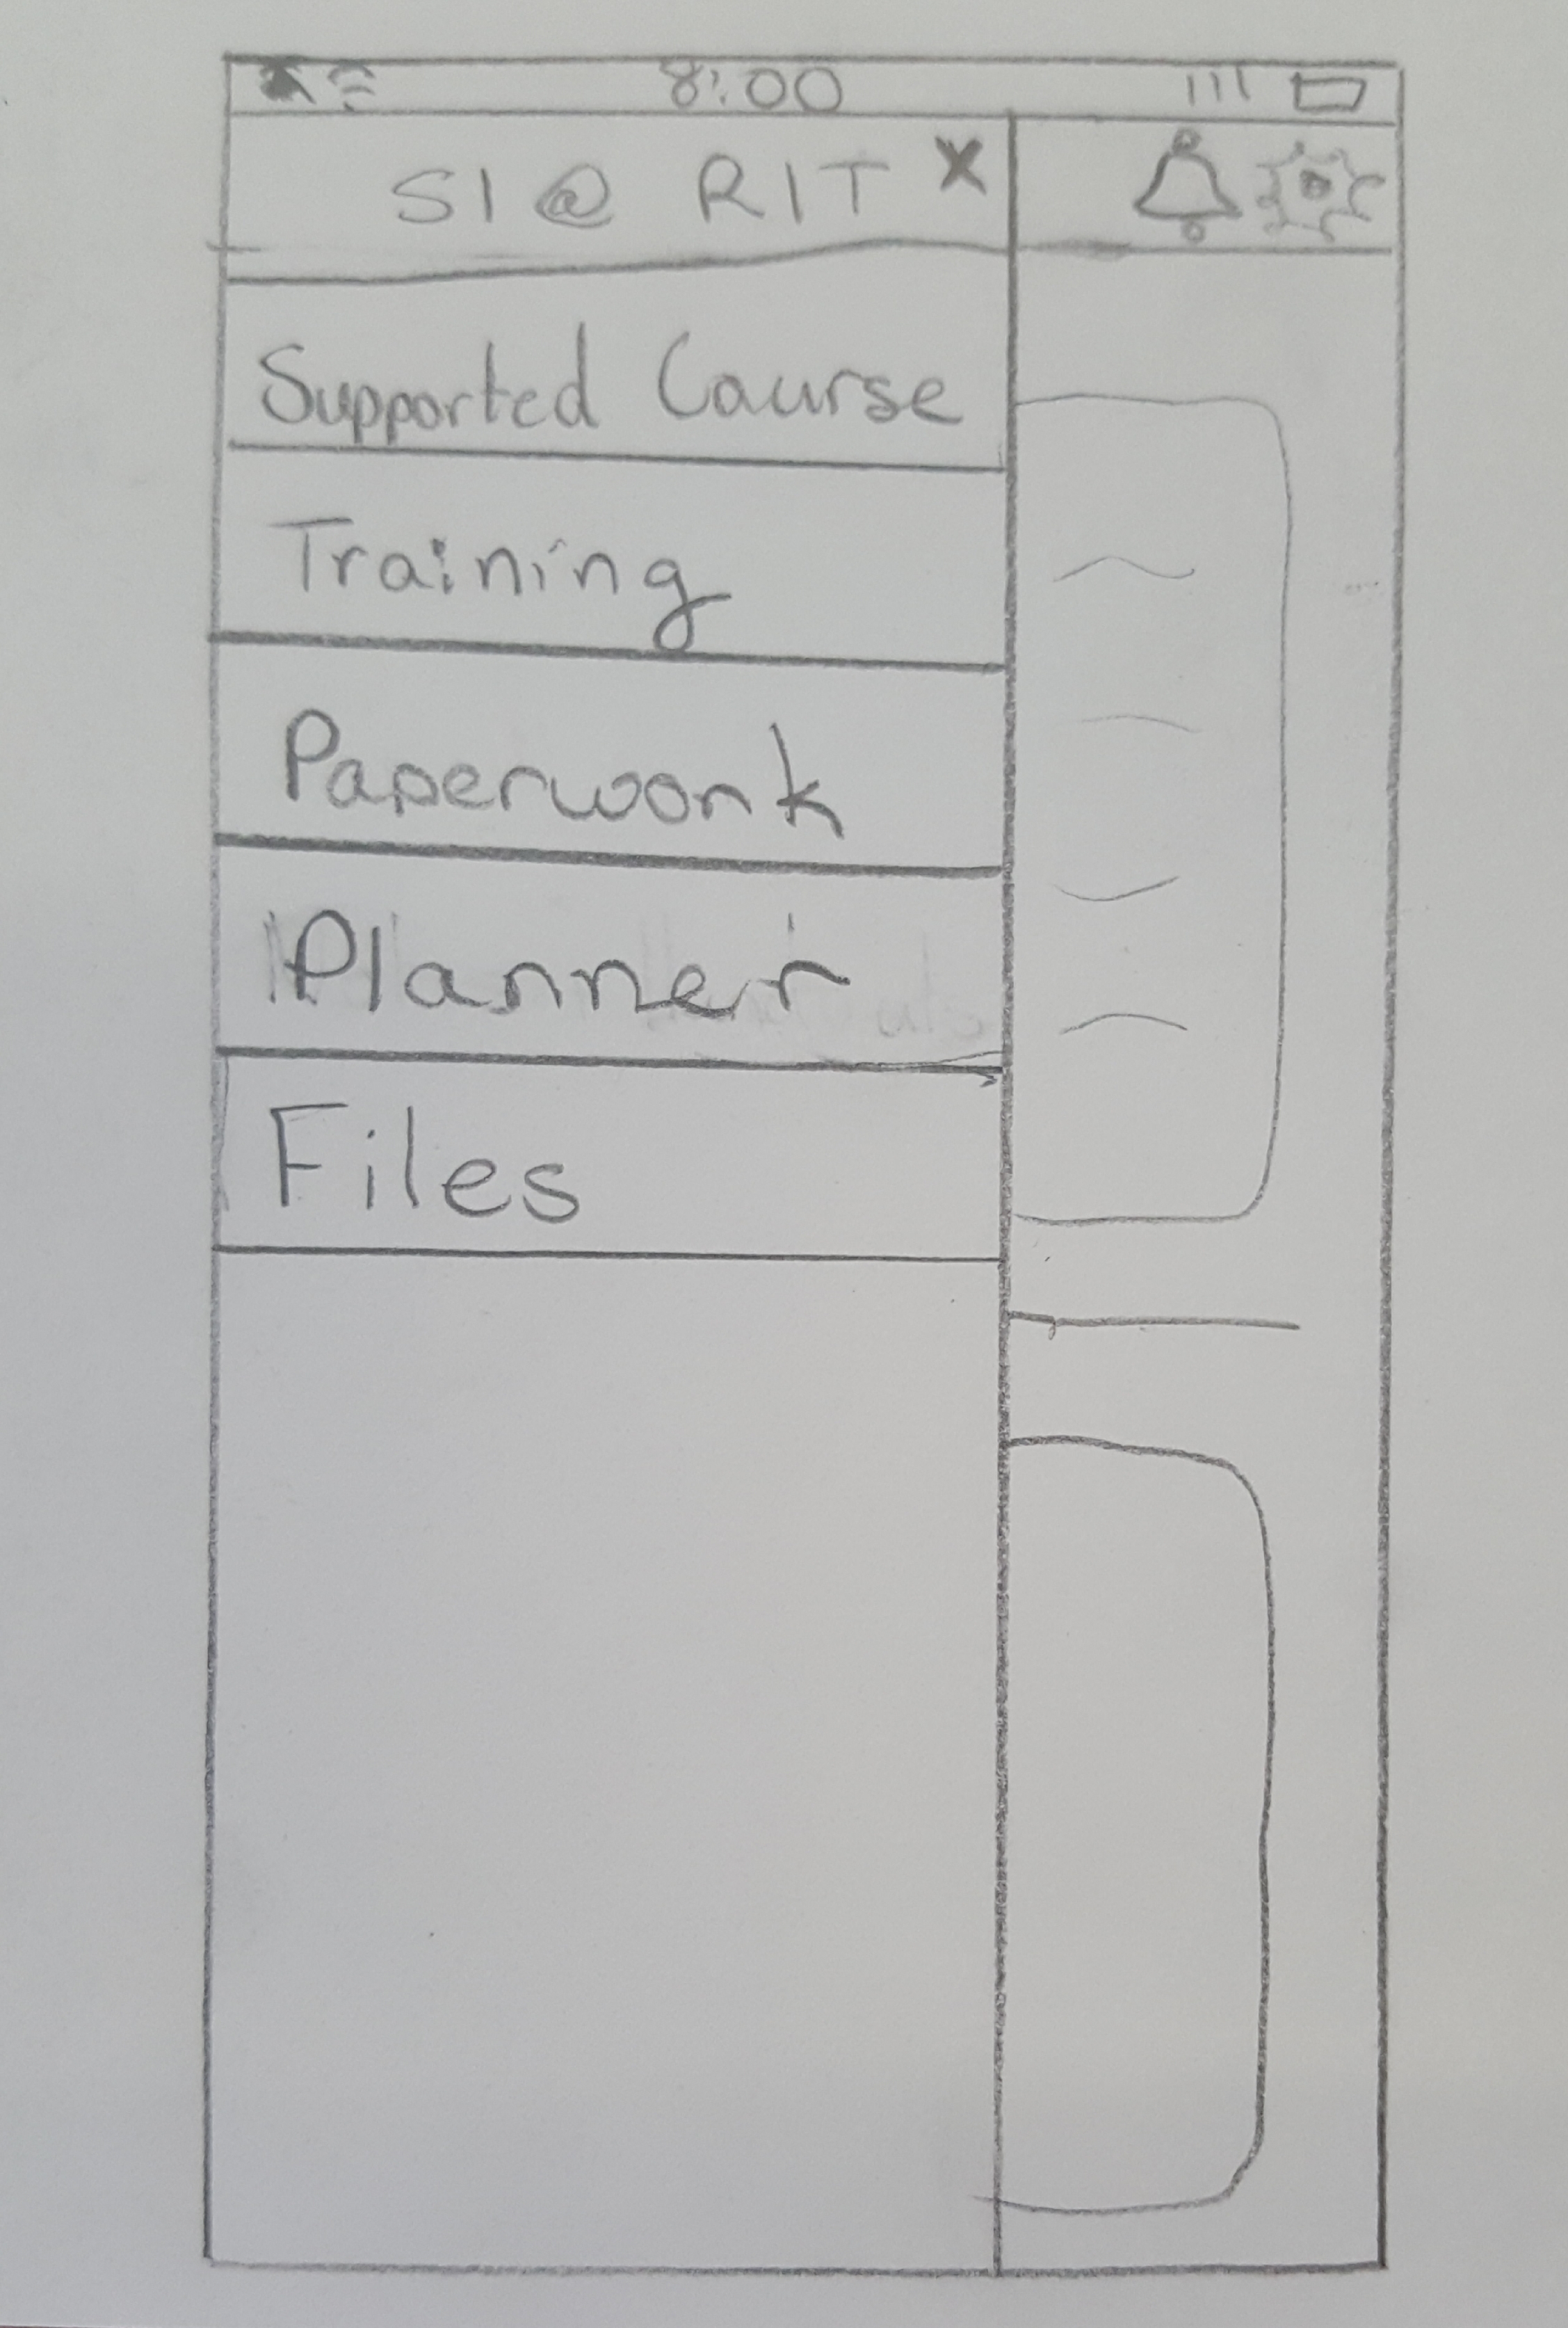 8:00
SI @ RIT X
Supported Course
Training
Paperwork
Planner
Files